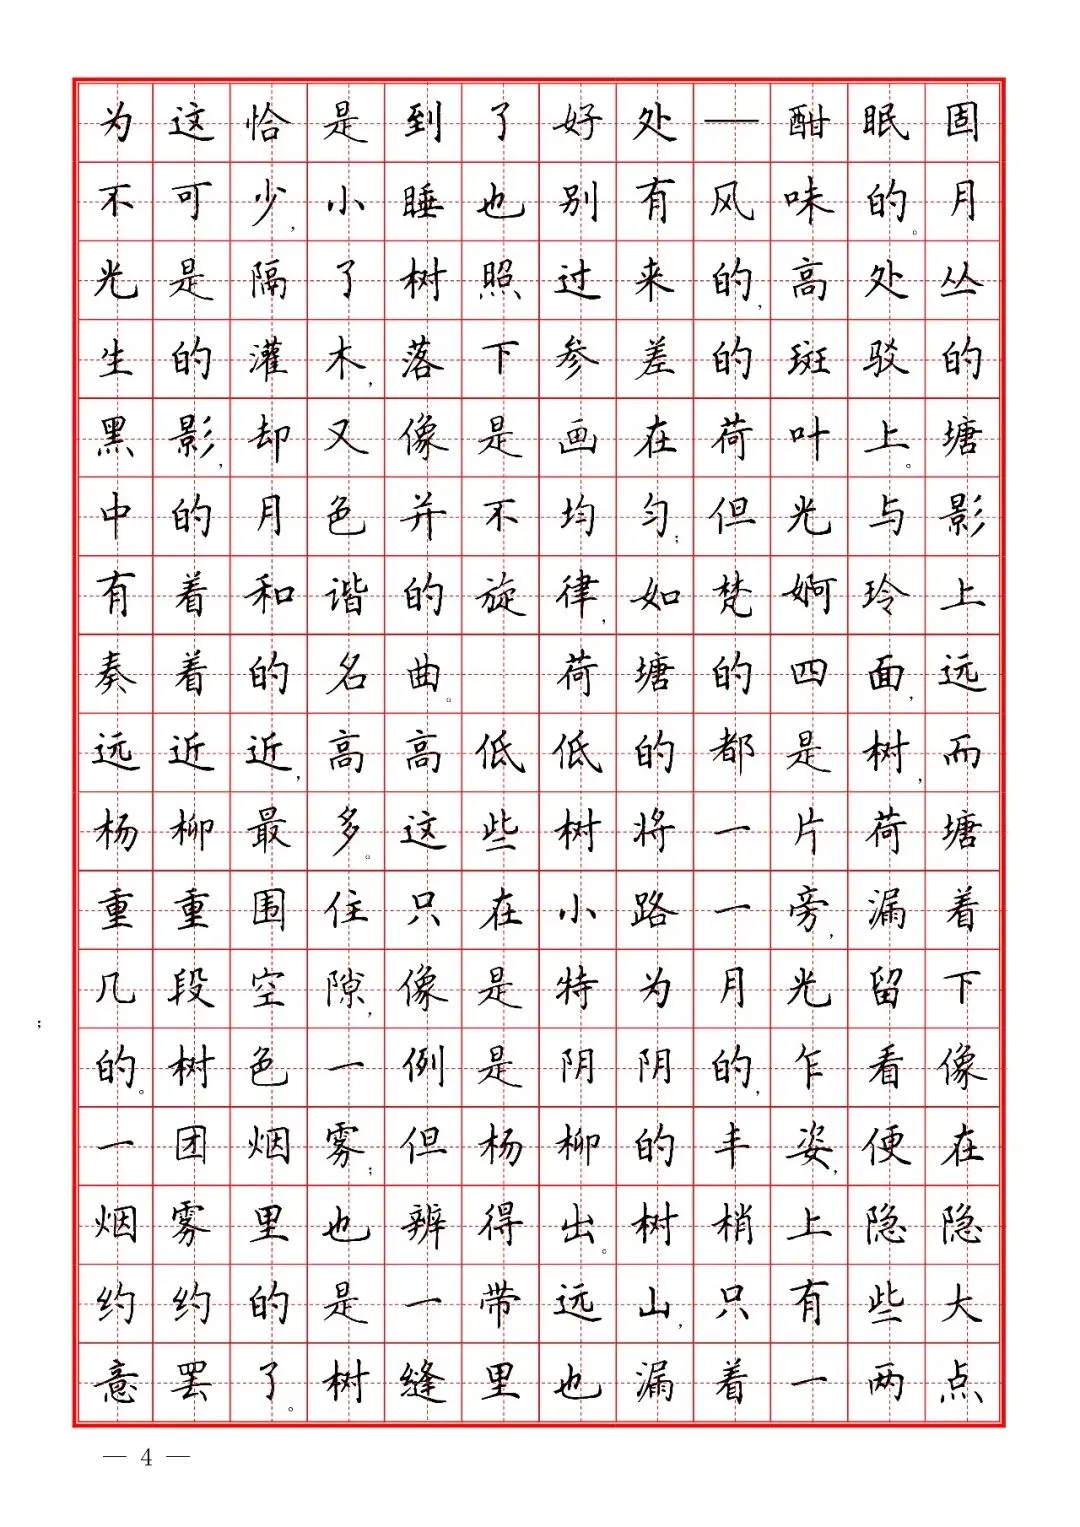 为这恰是到了好处—酣眠固
不可少,小睡也别有风味的。月
光是隔了树照过来的,高处丛
生的灌木,落下参差的斑驳的
黑影,却又像是画在荷叶上。塘
中的月色并不均匀;但光与影
有着和谐的旋律,如梵婀玲上
奏着的名曲。 荷塘的四面,远
远近近,高高低低的都是树,而
杨柳最多。这些树将一片荷塘
重重围住只在小路一旁,漏着
几段空隙,像是特为月光留下
;
的。树色一例是阴阴的,乍看像
一团烟雾;但杨柳的丰姿,便在
烟雾里也辨得出。树梢上隐隐
约约的是一带远山,只有些大
意罢了。树缝里也漏着一两点
— 4 —